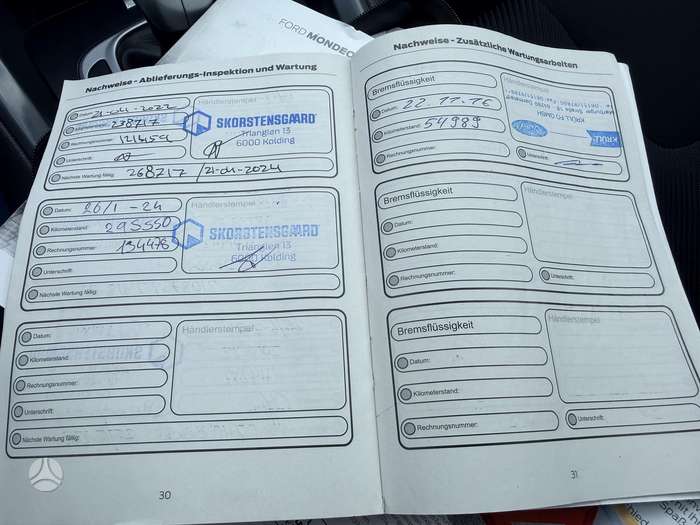 FORD MONDEO
Nachweise - Ablieferungs-Inspektion und Wartung
Datum: 21-01-2022
Händlerstempel
Kilometerstand: 238717
SKORSTENSGAARD
Rechnungsnummer: 121459
Trianglen 13
6000 Kolding
Unterschrift:
Nächste Wartung fällig: 268717 / 21-01-2024
Datum: 26/1-24
Händlerstempel
Kilometerstand: 295550
SKORSTENSGAARD
Rechnungsnummer: 134478
Trianglen 13
6000 Kolding
Unterschrift:
Nächste Wartung fällig:
Datum:
Händlerstempel
Kilometerstand:
Rechnungsnummer:
Unterschrift:
Nächste Wartung fällig:
30
Nachweise - Zusätzliche Wartungsarbeiten
Bremsflüssigkeit
Händlerstempel
Datum: 22.11.16
Kilometerstand: 54989
KRÜLL
Rechnungsnummer:
Unterschrift:
Bremsflüssigkeit
Händlerstempel
Datum:
Kilometerstand:
Rechnungsnummer:
Unterschrift:
Bremsflüssigkeit
Händlerstempel
Datum:
Kilometerstand:
Rechnungsnummer:
Unterschrift:
31